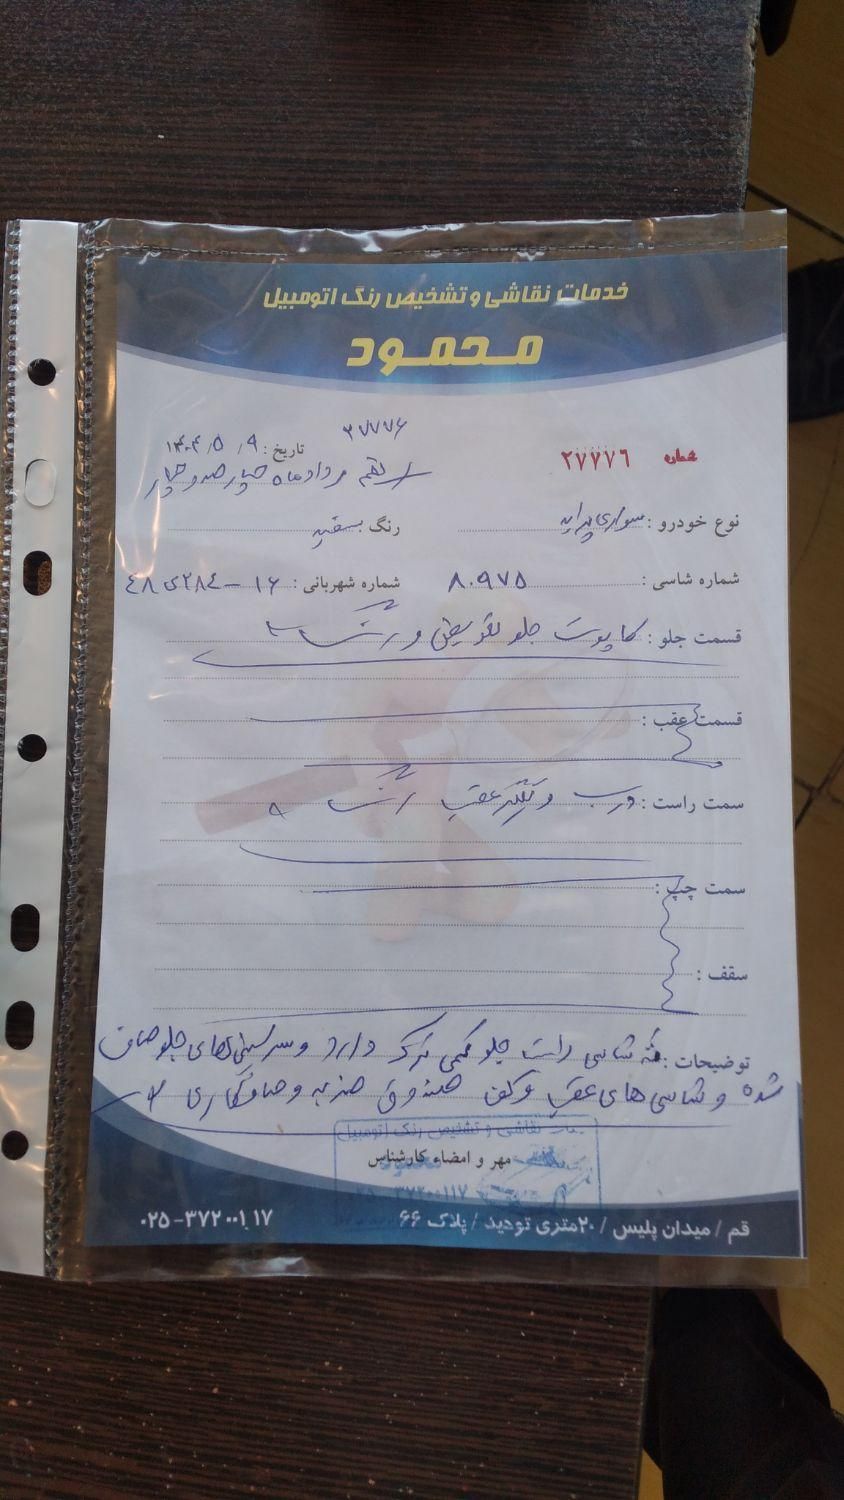 خدمات نقاشی و تشخیص رنگ اتومبیل
محمود
۲۷۷۷۶
شماره ۲۷۷۷۶
تاریخ : ۱۴۰۴/۵/۹
نهم مرداد ماه چهار صد و چهار
نوع خودرو : سواری پراید
رنگ : سفید
شماره شاسی : ۸۰۹۷۵
شماره شهربانی : ۱۶ - ۲۸۴ی۴۸
قسمت جلو : کاپوت جلو تعویض و رنگ
قسمت عقب :
سمت راست : درب و گلگیر عقب رنگ
سمت چپ :
سقف :
توضیحات : شاسی راست جلو کمی ترک دارد و سر سینی‌های جلو صاف
شده و شاسی‌های عقب و کف صندوق ضربه و صافکاری
خدمات نقاشی و تشخیص رنگ اتومبیل
مهر و امضاء کارشناس
محمود
۰۲۵-۳۷۲۰۰۱۱۷
قم / میدان پلیس / ۲۰متری توحید / پلاک ۶۶
۰۲۵-۳۷۲۰۰۱۱۷